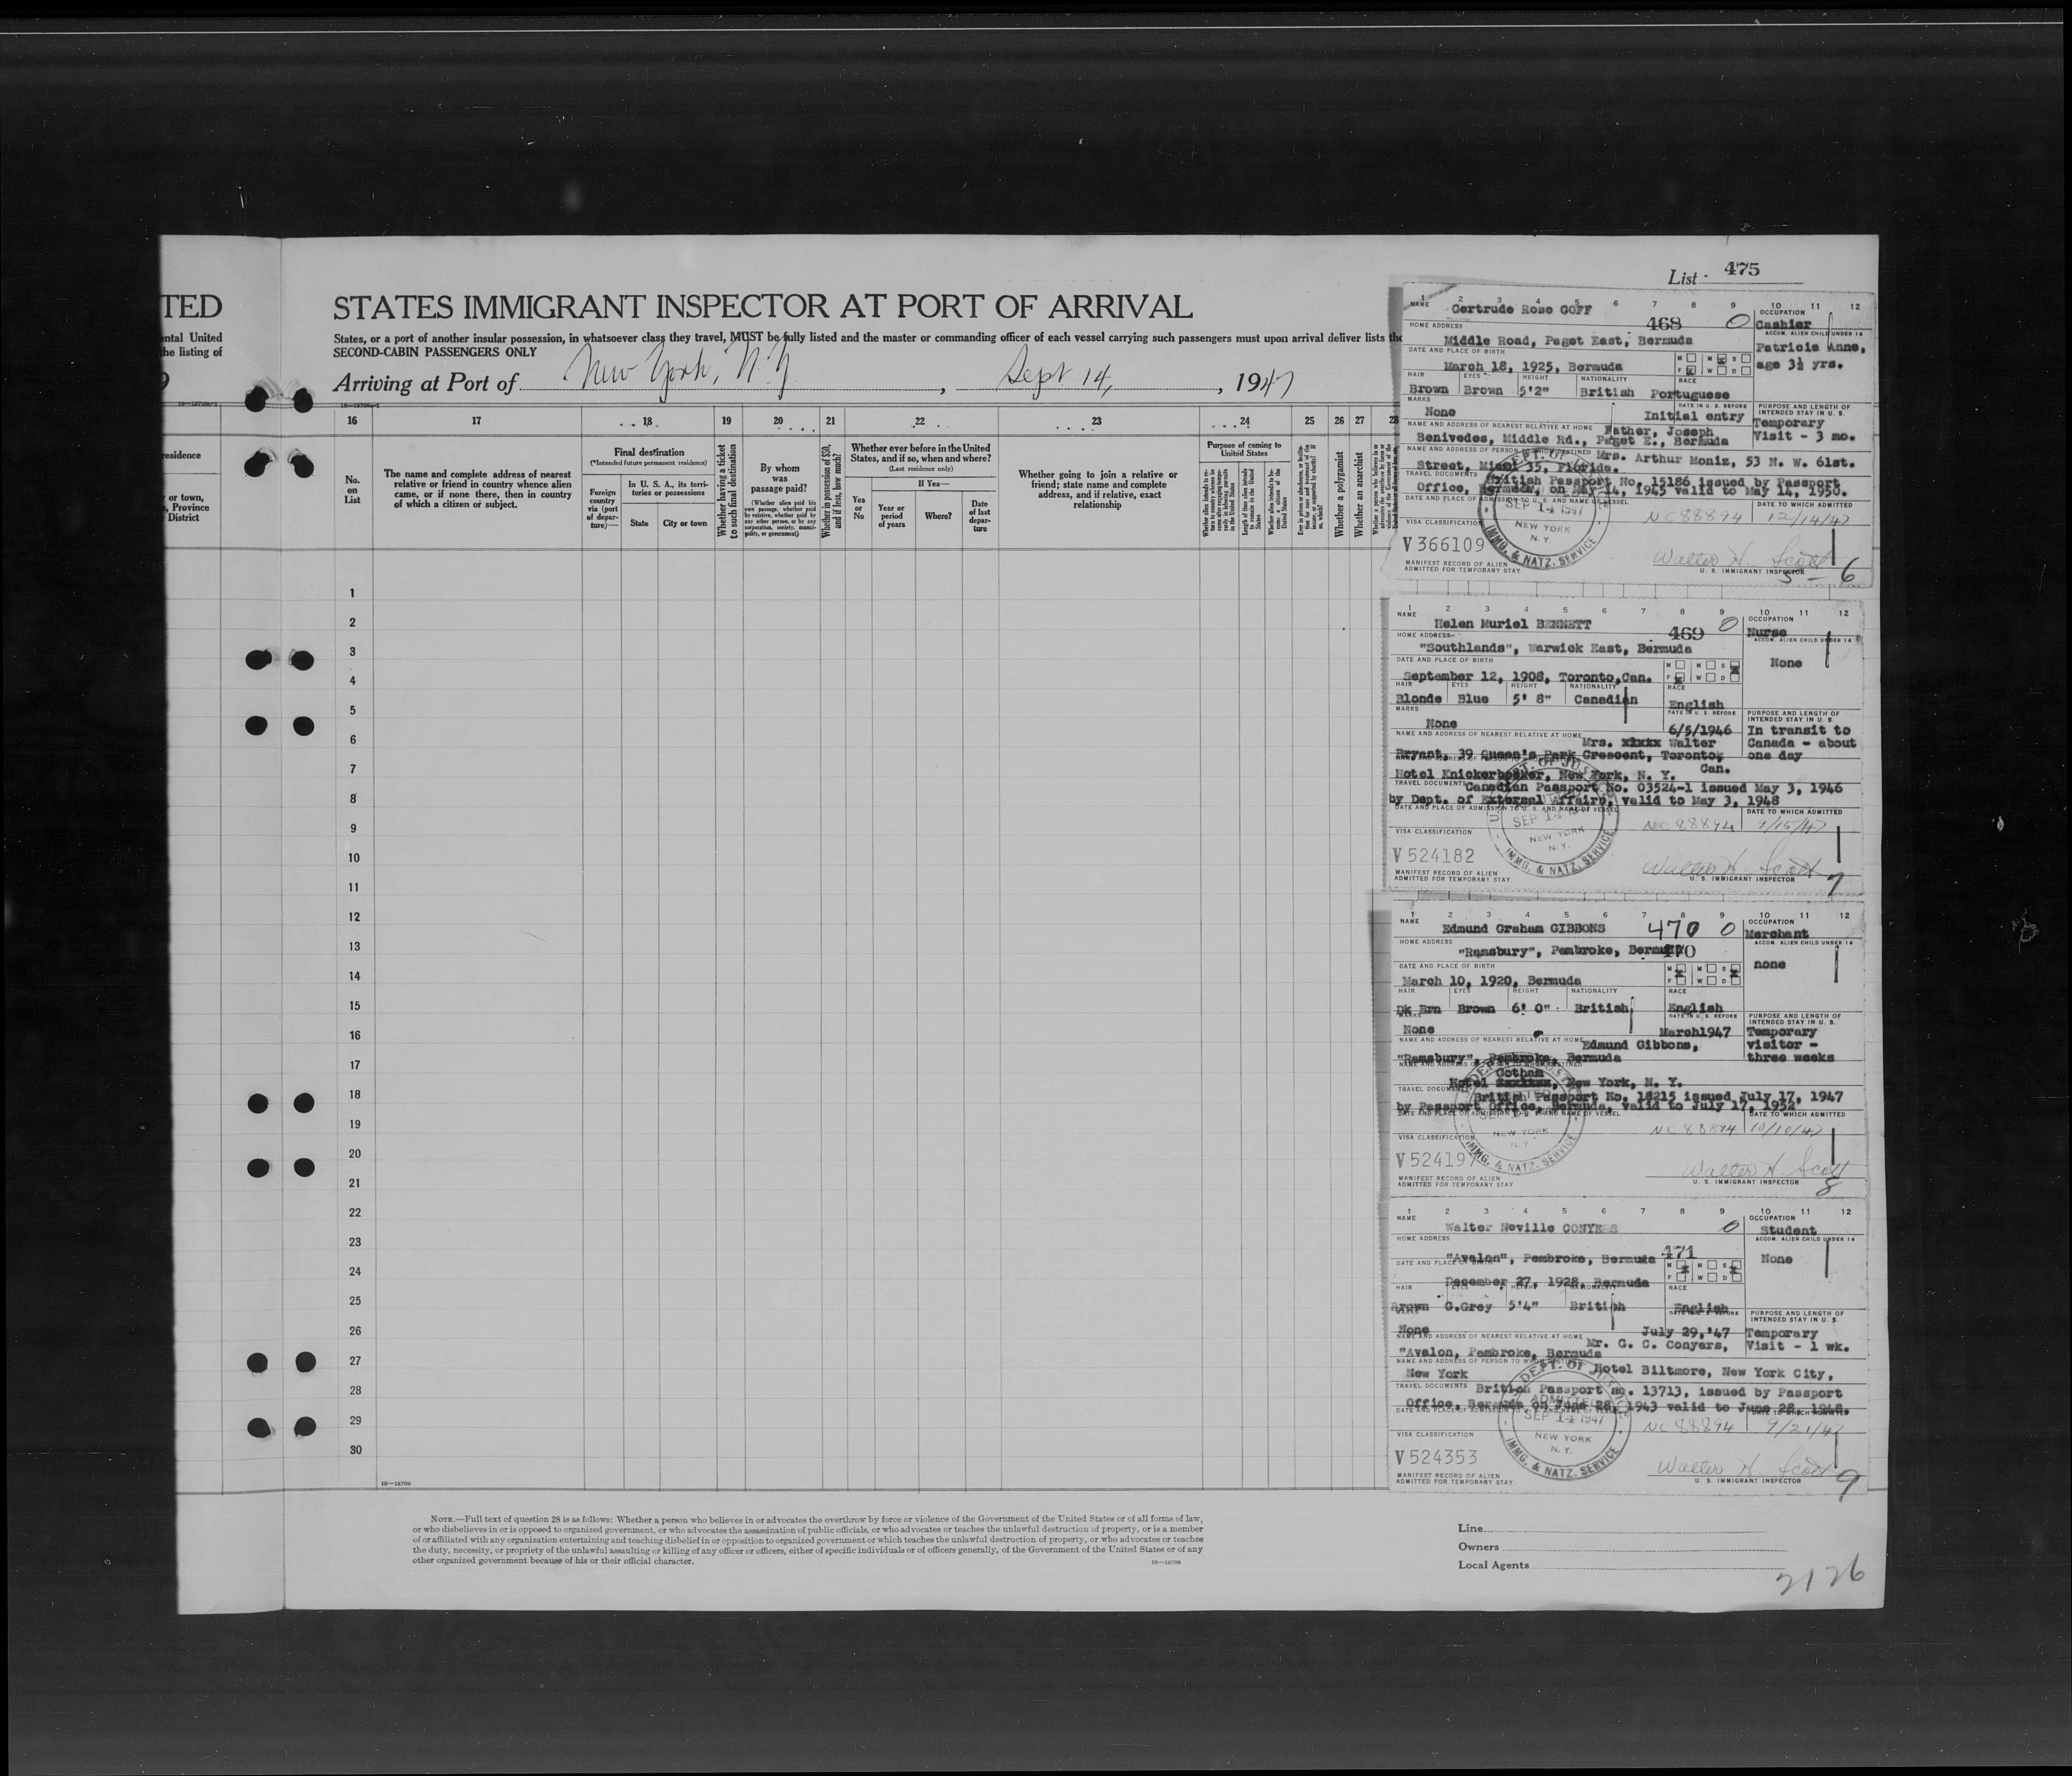 List 475
TED
ental United
the listing of
STATES IMMIGRANT INSPECTOR AT PORT OF ARRIVAL
States, or a port of another insular possession, in whatsoever class they travel, MUST be fully listed and the master or commanding officer of each vessel carrying such passengers must upon arrival deliver lists
SECOND-CABIN PASSENGERS ONLY
Arriving at Port of New York, N.Y , Sept 14, , 1947
16 17 18 19 20 21 22 23 24 25 26 27 28
residence
or town,
Province
District
No. on List
The name and complete address of nearest
relative or friend in country whence alien
came, or if none there, then in country
of which a citizen or subject.
Final destination
(*Intended future permanent residence)
Foreign country via (port of depar-ture)—
In U. S. A., its terri-
tories or possessions
State
City or town
Whether having a ticket to such final destination
By whom was passage paid?
(Whether alien paid his own passage, whether paid by relative, whether paid by any other person, or by any corporation, society, munici-pality, or government)
Whether in possession of $50, and if less, how much?
Whether ever before in the United
States, and if so, when and where?
(Last residence only)
Yes or No
If Yes—
Year or period of years
Where?
Date of last depar-ture
Whether going to join a relative or
friend; state name and complete
address, and if relative, exact
relationship
Purpose of coming to
United States
Whether a polygamist
Whether an anarchist
1
2
3
4
5
6
7
8
9
10
11
12
13
14
15
16
17
18
19
20
21
22
23
24
25
26
27
28
29
30
16—18709
NAME Gertrude Rose GOFF
468 0
OCCUPATION Cashier
HOME ADDRESS
Middle Road, Paget East, Bermuda
ACCOM. ALIEN CHILD UNDER 14
Patricia Anne,
age 3½ yrs.
DATE AND PLACE OF BIRTH
March 18, 1925, Bermuda
HAIR EYES HEIGHT NATIONALITY RACE
Brown Brown 5'2" British Portuguese
MARKS None
DATE IN U. S. BEFORE
Initial entry
PURPOSE AND LENGTH OF INTENDED STAY IN U. S.
Temporary
Visit - 3 mo.
NAME AND ADDRESS OF NEAREST RELATIVE AT HOME Father, Joseph
Benivedes, Middle Rd., Paget E., Bermuda
Mrs. Arthur Moniz, 53 N. W. 61st.
Street, Miami 35, Florida.
TRAVEL DOCUMENTS British Passport No. 15186 issued by Passport
Office, Bermuda, on May 14, 1945 valid to May 14, 1950.
DATE AND PLACE OF ADMISSION TO U. S. AND NAME OF VESSEL
DATE TO WHICH ADMITTED
SEP 14 1947
NEW YORK
N. Y.
IMMG. & NATZ. SERVICE
NC 88894 12/14/47
VISA CLASSIFICATION
V 366109
Walter H. Scott
MANIFEST RECORD OF ALIEN
ADMITTED FOR TEMPORARY STAY.
U. S. IMMIGRANT INSPECTOR
5 - 6
NAME Helen Muriel BENNETT
469 0
OCCUPATION Nurse
HOME ADDRESS
"Southlands", Warwick East, Bermuda
ACCOM. ALIEN CHILD UNDER 14
None
DATE AND PLACE OF BIRTH
September 12, 1908, Toronto,Can.
HAIR EYES HEIGHT NATIONALITY RACE
Blonde Blue 5' 8" Canadian English
MARKS None
DATE IN U. S. BEFORE
6/5/1946
PURPOSE AND LENGTH OF INTENDED STAY IN U. S.
In transit to
Canada - about
one day
NAME AND ADDRESS OF NEAREST RELATIVE AT HOME Mrs. xxxxx Walter
Bryant, 39 Queen's Park Crescent, Toronto, Can.
Hotel Knickerbocker, New York, N. Y.
TRAVEL DOCUMENTS Canadian Passport No. 03524-1 issued May 3, 1946
by Dept. of External Affairs, valid to May 3, 1948
DATE AND PLACE OF ADMISSION TO U. S. AND NAME OF VESSEL
DATE TO WHICH ADMITTED
SEP 14 1947
NEW YORK
N. Y.
IMMG. & NATZ. SERVICE
NC 88894 9/15/47
VISA CLASSIFICATION
V 524182
Walter H. Scott
MANIFEST RECORD OF ALIEN
ADMITTED FOR TEMPORARY STAY.
U. S. IMMIGRANT INSPECTOR
7
NAME Edmund Graham GIBBONS
470 0
OCCUPATION Merchant
HOME ADDRESS
"Ramsbury", Pembroke, Bermuda
470
ACCOM. ALIEN CHILD UNDER 14
none
DATE AND PLACE OF BIRTH
March 10, 1920, Bermuda
HAIR EYES HEIGHT NATIONALITY RACE
Dk Brn Brown 6' 0" British English
MARKS None
DATE IN U. S. BEFORE
March1947
PURPOSE AND LENGTH OF INTENDED STAY IN U. S.
Temporary
visitor -
three weeks
NAME AND ADDRESS OF NEAREST RELATIVE AT HOME Edmund Gibbons,
"Ramsbury", Pembroke, Bermuda
Gotham
Hotel xxxxxxx, New York, N. Y.
TRAVEL DOCUMENTS British Passport No. 18215 issued July 17, 1947
by Passport Office, Bermuda, valid to July 17, 1952
DATE AND PLACE OF ADMISSION TO U. S. AND NAME OF VESSEL
DATE TO WHICH ADMITTED
NEW YORK
N. Y.
IMMG. & NATZ. SERVICE
NC 88894 10/10/47
VISA CLASSIFICATION
V 52419
Walter H. Scott
MANIFEST RECORD OF ALIEN
ADMITTED FOR TEMPORARY STAY.
U. S. IMMIGRANT INSPECTOR
8
NAME Walter Neville CONYERS
0
OCCUPATION Student
HOME ADDRESS
"Avalon", Pembroke, Bermuda
471
ACCOM. ALIEN CHILD UNDER 14
None
DATE AND PLACE OF BIRTH
December 27, 1928, Bermuda
HAIR EYES HEIGHT NATIONALITY RACE
Brown G.Grey 5'4" British English
None
July 29,'47
PURPOSE AND LENGTH OF INTENDED STAY IN U. S.
Temporary
Visit - 1 wk.
NAME AND ADDRESS OF NEAREST RELATIVE AT HOME Mr. G. C. Conyers,
"Avalon, Pembroke, Bermuda
NAME AND ADDRESS OF PERSON TO WHOM DESTINED
Hotel Biltmore, New York City,
New York
TRAVEL DOCUMENTS British Passport no. 13713, issued by Passport
Office, Bermuda on June 28, 1943 valid to June 28, 1948.
DEPT. OF JUSTICE
ADMITTED
SEP 14 1947
NEW YORK
N. Y.
IMMG. & NATZ. SERVICE
NC 88894 9/21/47
VISA CLASSIFICATION
V 524353
Walter H Scott
MANIFEST RECORD OF ALIEN
ADMITTED FOR TEMPORARY STAY.
U. S. IMMIGRANT INSPECTOR
9
NOTE.—Full text of question 28 is as follows: Whether a person who believes in or advocates the overthrow by force or violence of the Government of the United States or of all forms of law,
or who disbelieves in or is opposed to organized government, or who advocates the assassination of public officials, or who advocates or teaches the unlawful destruction of property, or is a member
of or affiliated with any organization entertaining and teaching disbelief in or opposition to organized government or which teaches the unlawful destruction of property, or who advocates or teaches
the duty, necessity, or propriety of the unlawful assaulting or killing of any officer or officers, either of specific individuals or of officers generally, of the Government of the United States or of any
other organized government because of his or their official character.
16—18709
Line
Owners
Local Agents
2126